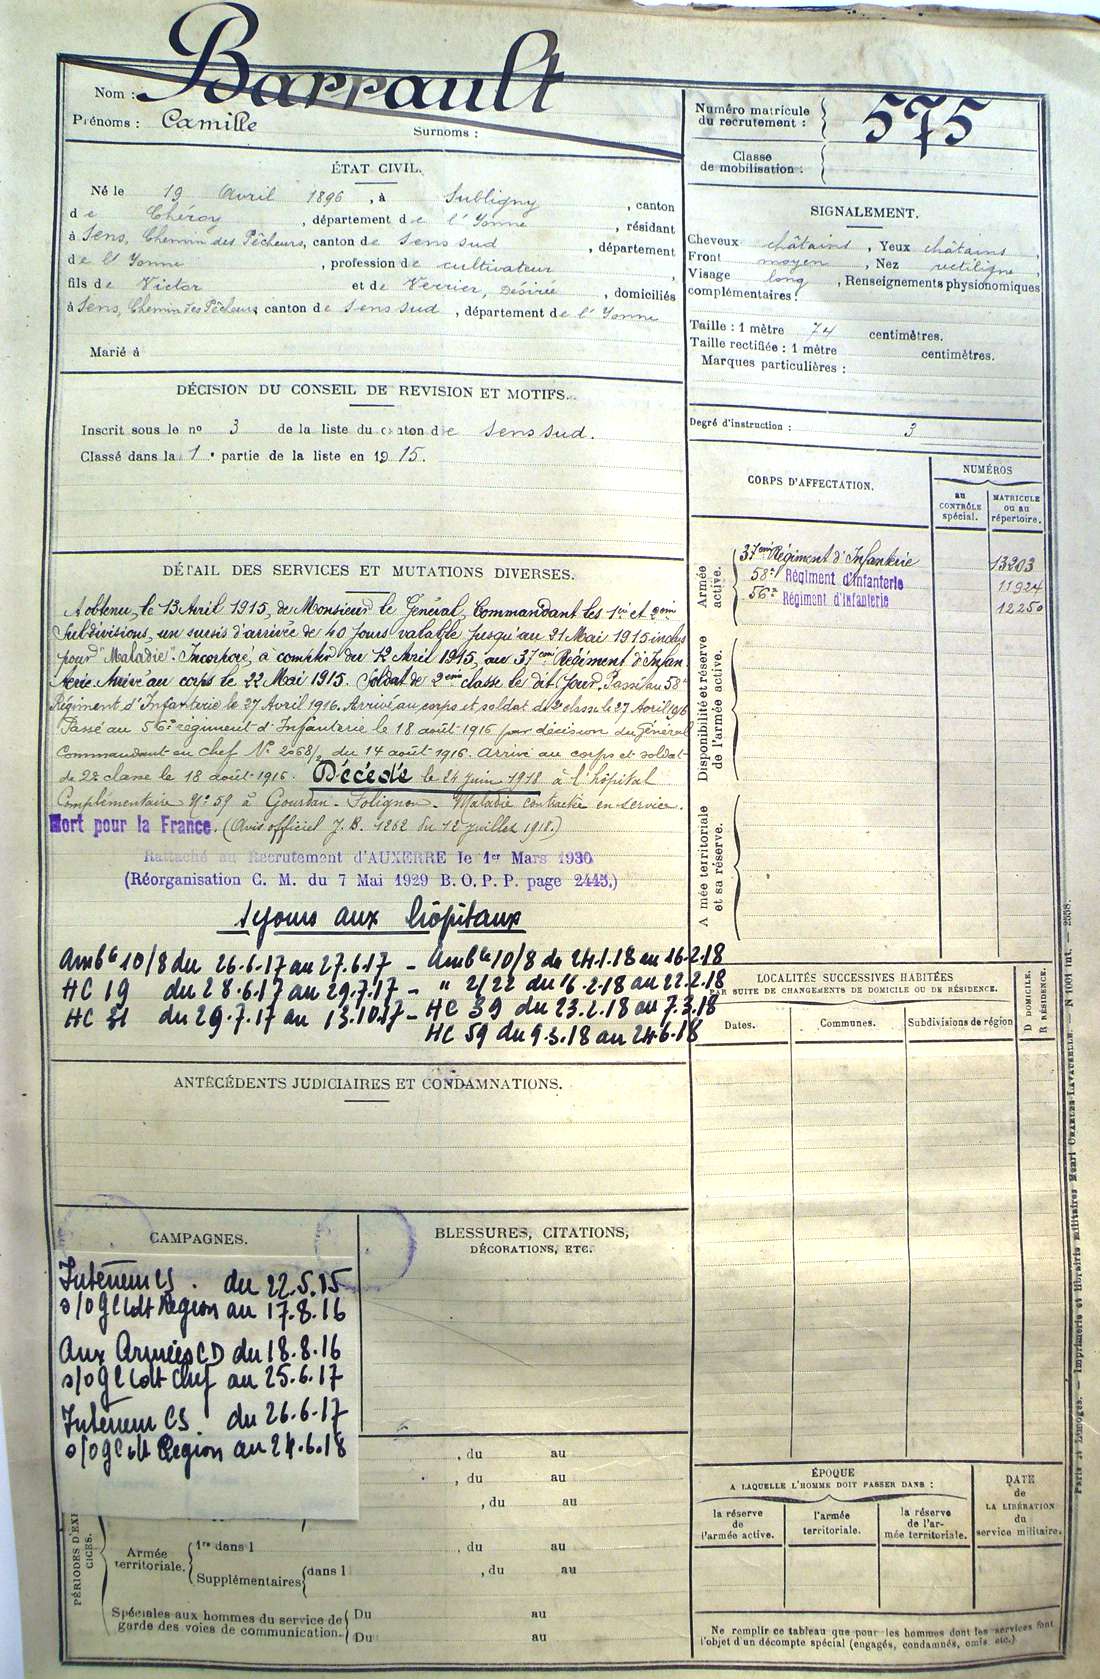 Nom : Barrault
Prénoms : Camille Surnoms :
Numéro matricule du recrutement : 575
Classe de mobilisation :
ÉTAT CIVIL.
Né le 19 Avril 1896, à Subligny, canton
de Chéroy, département de l'Yonne, résidant
à Sens, Chemin des Pêcheurs, canton de Sens sud, département
de l'Yonne, profession de cultivateur,
fils de Victor et de Verrier, Désirée, domiciliés
à Sens, Chemin des Pêcheurs, canton de Sens sud, département de l'Yonne
Marié à
SIGNALEMENT.
Cheveux châtains, Yeux châtains,
Front moyen, Nez rectiligne,
Visage long, Renseignements physionomiques
complémentaires :
Taille : 1 mètre 74 centimètres.
Taille rectifiée : 1 mètre centimètres.
Marques particulières :
Degré d'instruction : 3
DÉCISION DU CONSEIL DE REVISION ET MOTIFS.
Inscrit sous le nº 3 de la liste du canton de Sens sud.
Classé dans la 1e partie de la liste en 1915.
CORPS D'AFFECTATION.
NUMÉROS
au CONTRÔLE spécial.
MATRICULE ou au répertoire.
Armée active.
37ème Régiment d'Infanterie 13203
58e Régiment d'Infanterie 11924
56e Régiment d'Infanterie 12250
Disponibilité et réserve de l'armée active.
Armée territoriale et sa réserve.
DÉTAIL DES SERVICES ET MUTATIONS DIVERSES.
A obtenu, le 13 Avril 1915, de Monsieur le Général Commandant les 1re et 2ème
Subdivisions, un sursis d'arrivée de 40 jours valable jusqu'au 21 Mai 1915 inclus
pour "Maladie". Incorporé à compter du 12 Avril 1915, au 37ème Régiment d'Infan-
terie. Arrivé au corps le 22 Mai 1915. Soldat de 2ème classe le dit jour. Passé au 58e
Régiment d'Infanterie le 27 Avril 1916. Arrivé au corps et soldat de 2e classe le 27 Avril 1916
Passé au 56e régiment d'Infanterie le 18 août 1916 par décision du Général
Commandant en chef Nº 2068/2 du 14 août 1916. Arrivé au corps et soldat
de 2e classe le 18 août 1916. Décédé le 24 juin 1918 à l'hôpital
Complémentaire Nº 59 à Gourdan-Polignan. Maladie contractée en service.
Mort pour la France. (Avis officiel J.B. 1262 du 12 juillet 1918.)
Rattaché au Recrutement d'AUXERRE le 1er Mars 1930
(Réorganisation C. M. du 7 Mai 1929 B. O. P. P. page 2445.)
séjours aux hôpitaux
Ambce 10/8 du 26.6.17 au 27.6.17 - Ambce 10/8 du 24.1.18 au 16.2.18
HC 19 du 28.6.17 au 29.7.17 - " 2/22 du 16.2.18 au 22.2.18
HC 31 du 29.7.17 au 13.10.17 - HC 39 du 23.2.18 au 7.3.18
HC 59 du 9.3.18 au 24.6.18
LOCALITÉS SUCCESSIVES HABITÉES
PAR SUITE DE CHANGEMENTS DE DOMICILE OU DE RÉSIDENCE.
D DOMICILE.
R RÉSIDENCE.
Dates. Communes. Subdivisions de région
ANTÉCÉDENTS JUDICIAIRES ET CONDAMNATIONS.
CAMPAGNES.
Intérieur CS. du 22.5.15
s/o Gl Cdt Région au 17.8.16
Aux Armées CD du 18.8.16
s/o Gl Cdt Chef au 25.6.17
Intérieur CS du 26.6.17
s/o Gl Cdt Région au 24.6.18
BLESSURES, CITATIONS,
DÉCORATIONS, ETC.
, du au
, du au
, du au
PÉRIODES D'EXERCICES.
Armée territoriale. 1re dans l , du au
Supplémentaires dans l , du au
Spéciales aux hommes du service de garde des voies de communication. Du au
Du au
ÉPOQUE
A LAQUELLE L'HOMME DOIT PASSER DANS :
la réserve de l'armée active.
l'armée territoriale.
la réserve de l'armée territoriale.
DATE de LA LIBÉRATION du service militaire.
Ne remplir ce tableau que pour les hommes dont les services font
l'objet d'un décompte spécial (engagés, condamnés, omis etc.)
Paris et Limoges. — Imprimerie et librairie militaires Henri CHARLES-LAVAUZELLE. — N 1001 int. — 2558.